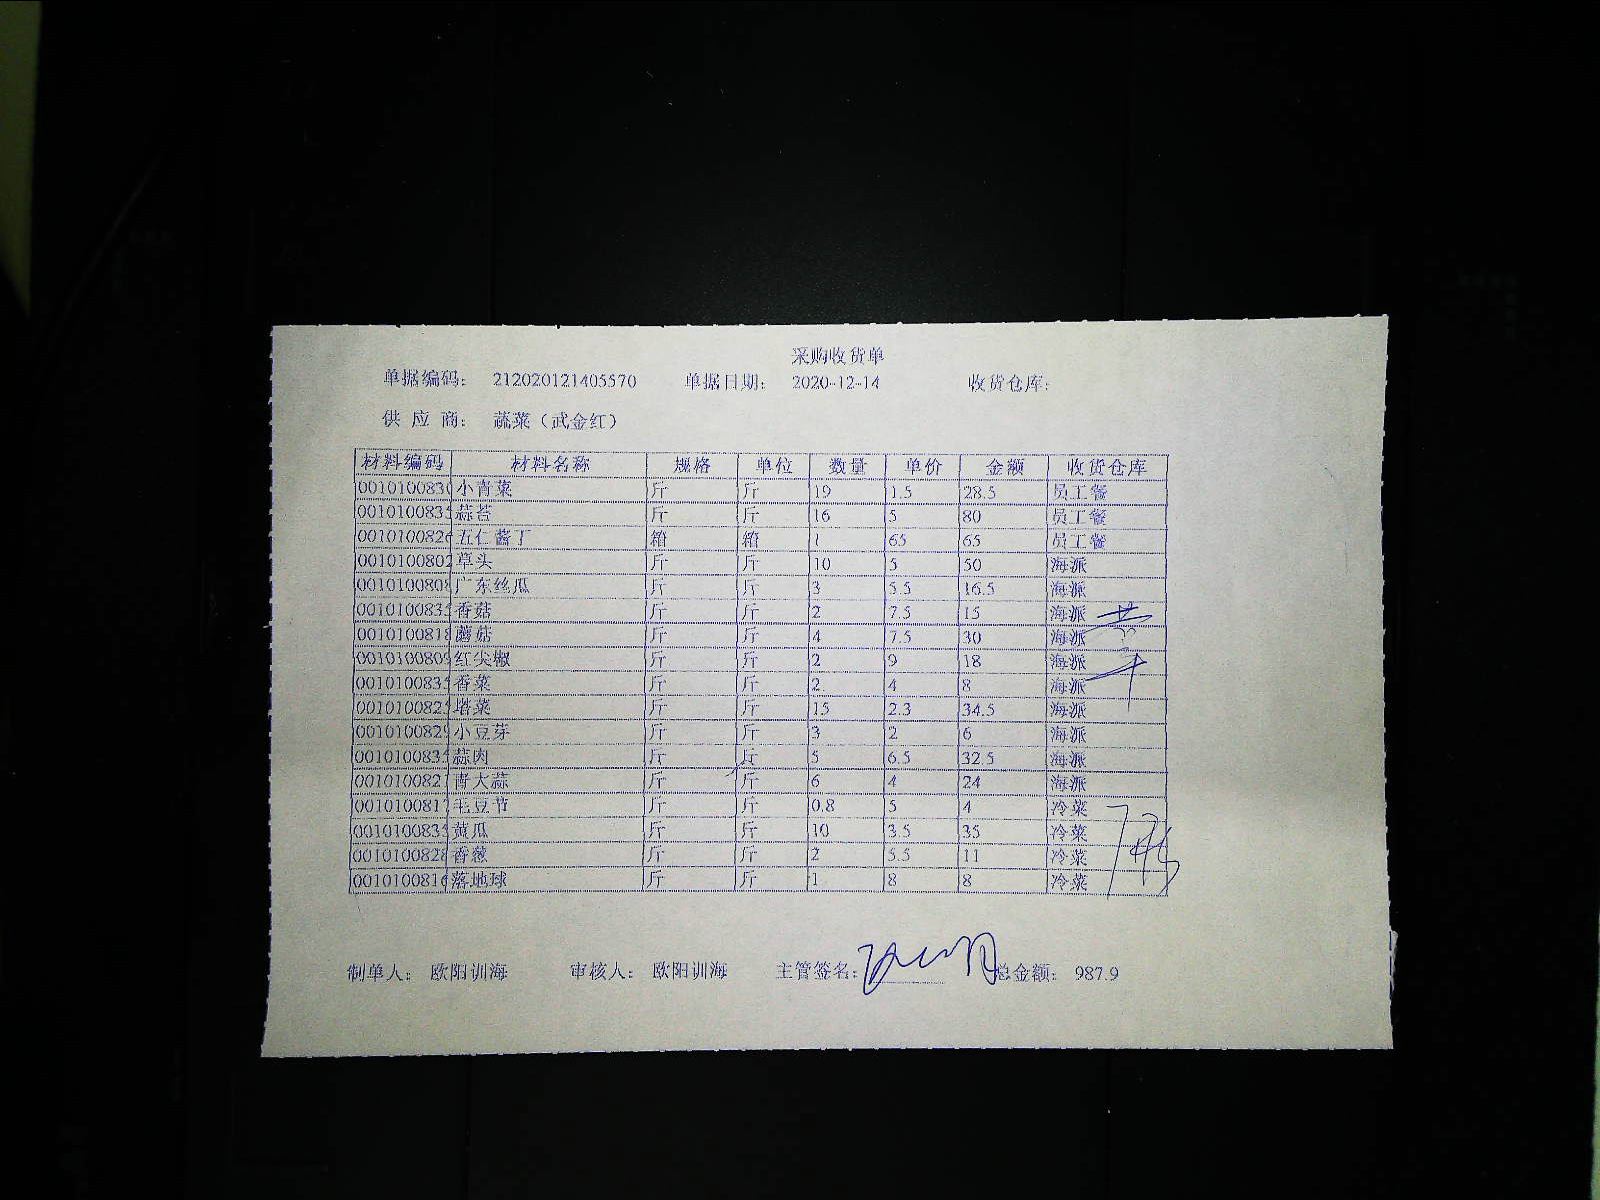 采购收货单
单据编码： 212020121405570 单据日期： 2020-12-14 收货仓库：
供 应 商： 蔬菜（武金红）
材料编码 材料名称 规格 单位 数量 单价 金额 收货仓库
0010100830 小青菜 斤 斤 19 1.5 28.5 员工餐
001010083 蒜苔 斤 斤 16 5 80 员工餐
001010082 五仁酱丁 箱 箱 1 65 65 员工餐
0010100802 草头 斤 斤 10 5 50 海派
0010100808 广东丝瓜 斤 斤 3 5.5 16.5 海派
001010083 香菇 斤 斤 2 7.5 15 海派
0010100818 蘑菇 斤 斤 4 7.5 30 海派
0010100809 红尖椒 斤 斤 2 9 18 海派
001010083 香菜 斤 斤 2 4 8 海派
001010082 塔菜 斤 斤 15 2.3 34.5 海派
0010100829 小豆芽 斤 斤 3 2 6 海派
001010083 蒜肉 斤 斤 5 6.5 32.5 海派
001010082 青大蒜 斤 斤 6 4 24 海派
0010100817 毛豆节 斤 斤 0.8 5 4 冷菜
001010083 黄瓜 斤 斤 10 3.5 35 冷菜
0010100828 香葱 斤 斤 2 5.5 11 冷菜
0010100816 落地球 斤 斤 1 8 8 冷菜
制单人： 欧阳训海 审核人： 欧阳训海 主管签名： 总金额： 987.9